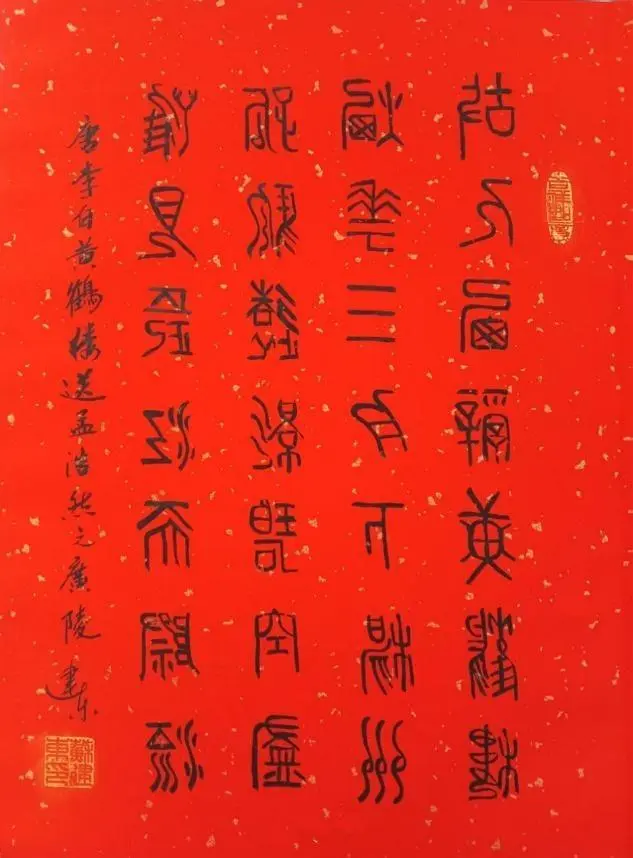 故人西辭黃鶴樓
煙花三月下揚州
孤帆遠影碧空盡
唯見長江天際流
唐李白黄鶴樓送孟浩然之廣陵 建东
蘇建東印